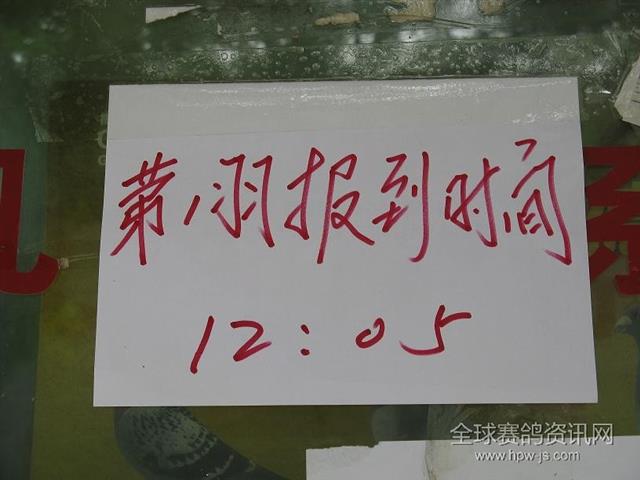 第1羽报到时间
12:05
全球赛鸽资讯网
www.hpw-js.com